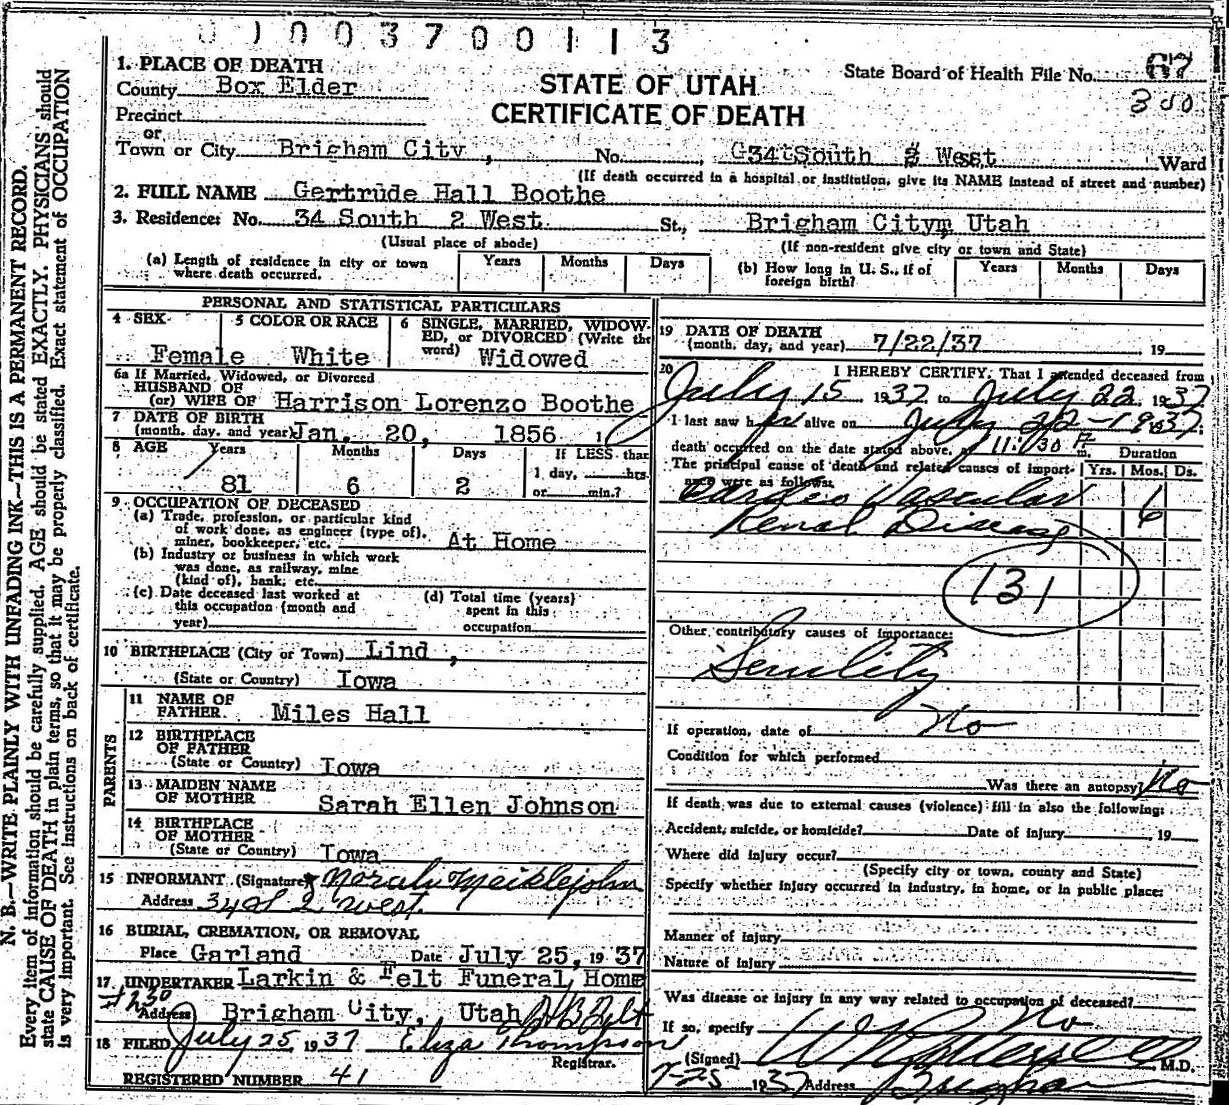 0 1 0 0 3 7 0 0 1 1 3
1. PLACE OF DEATH
County Box Elder
Precinct
or
Town or City Brigham City , No. , G34tSouth 2 West Ward
STATE OF UTAH
CERTIFICATE OF DEATH
State Board of Health File No. 67
380
(If death occurred in a hospital or institution, give its NAME instead of street and number)
2. FULL NAME Gertrude Hall Boothe
3. Residence: No. 34 South 2 West St., Brigham Citym Utah
(Usual place of abode) (If non-resident give city or town and State)
(a) Length of residence in city or town where death occurred. Years Months Days
(b) How long in U. S., if of foreign birth? Years Months Days
PERSONAL AND STATISTICAL PARTICULARS
4 SEX Female
5 COLOR OR RACE White
6 SINGLE, MARRIED, WIDOWED, or DIVORCED (Write the word) Widowed
6a If Married, Widowed, or Divorced
HUSBAND OF
(or) WIFE OF Harrison Lorenzo Boothe
7 DATE OF BIRTH
(month, day, and year) Jan. 20, 1856
8 AGE Years Months Days If LESS than
1 day, hrs.
81 6 2 or min.?
9 OCCUPATION OF DECEASED
(a) Trade, profession, or particular kind
of work done, as engineer (type of),
miner, bookkeeper, etc. At Home
(b) Industry or business in which work
was done, as railway, mine
(kind of), bank, etc.
(c) Date deceased last worked at
this occupation (month and
year)
(d) Total time (years)
spent in this
occupation
10 BIRTHPLACE (City or Town) Lind ,
(State or Country) Iowa
PARENTS
11 NAME OF
FATHER Miles Hall
12 BIRTHPLACE
OF FATHER
(State or Country) Iowa
13 MAIDEN NAME
OF MOTHER Sarah Ellen Johnson
14 BIRTHPLACE
OF MOTHER
(State or Country) Iowa
15 INFORMANT (Signature) Norah Meiklejohn
Address 34 S 2 West.
16 BURIAL, CREMATION, OR REMOVAL
Place Garland Date July 25, 1937
17 UNDERTAKER Larkin & Felt Funeral Home
#230
Address Brigham City, Utah D B Felt
18 FILED July 25, 1937 Eliza Thompson
Registrar.
REGISTERED NUMBER 41
19 DATE OF DEATH
(month, day, and year) 7/22/37 , 19
20 I HEREBY CERTIFY, That I attended deceased from
July 15 1937, to July 22, 1937
I last saw her alive on July 22-1937:
death occurred on the date stated above, at 11:30 P m.
Duration
The principal cause of death and related causes of importance were as follows: Yrs. Mos. Ds.
Cardio Vascular 6
Renal Disease
131
Other contributory causes of importance:
Senility
If operation, date of No
Condition for which performed
Was there an autopsy? No
If death was due to external causes (violence) fill in also the following:
Accident, suicide, or homicide? Date of injury 19
Where did injury occur?
(Specify city or town, county and State)
Specify whether injury occurred in industry, in home, or in public place:
Manner of injury
Nature of injury
Was disease or injury in any way related to occupation of deceased?
If so, specify No
(Signed) M.D.
7-25 1937 Address Brigham
N. B.—WRITE PLAINLY WITH UNFADING INK—THIS IS A PERMANENT RECORD.
Every item of information should be carefully supplied. AGE should be stated EXACTLY. PHYSICIANS should
state CAUSE OF DEATH in plain terms, so that it may be properly classified. Exact statement of OCCUPATION
is very important. See instructions on back of certificate.